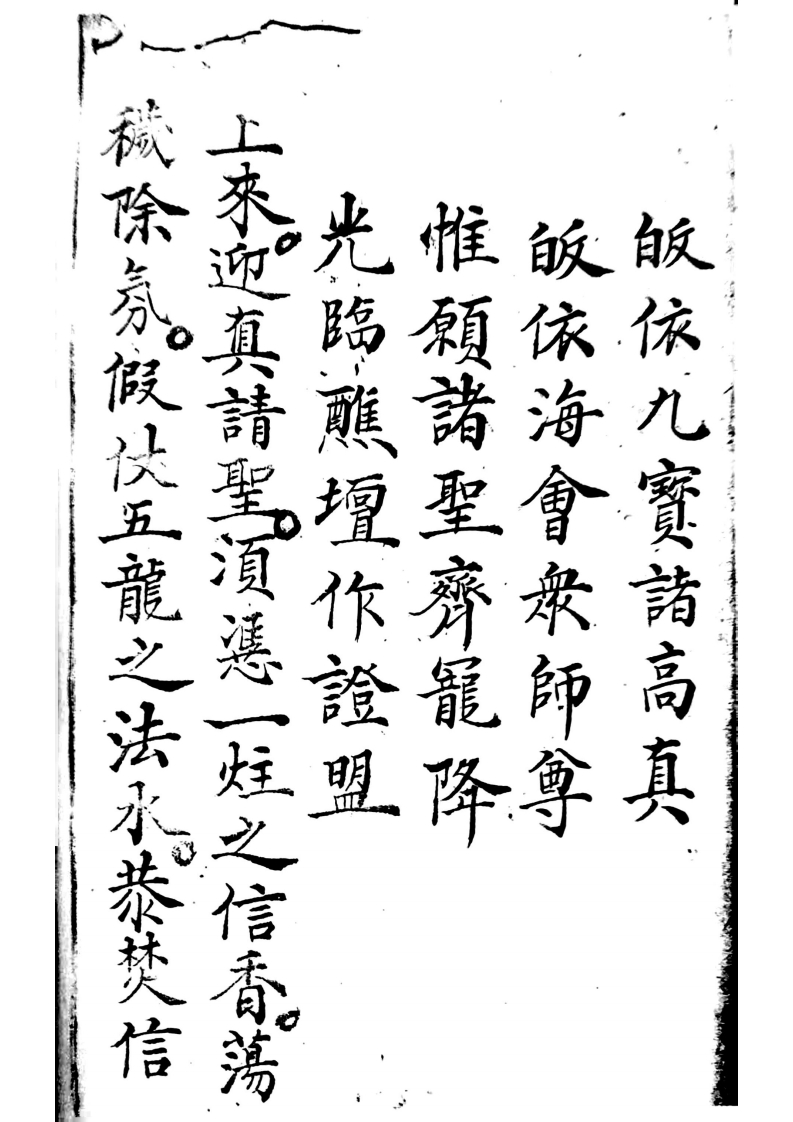 皈依九寶諸高真
皈依海會衆師尊
惟願諸聖齊寵降
光臨醮壇作證盟
上來。迎真請聖。須憑一炷之信香。蕩
穢除氛。假仗五龍之法水。恭焚信